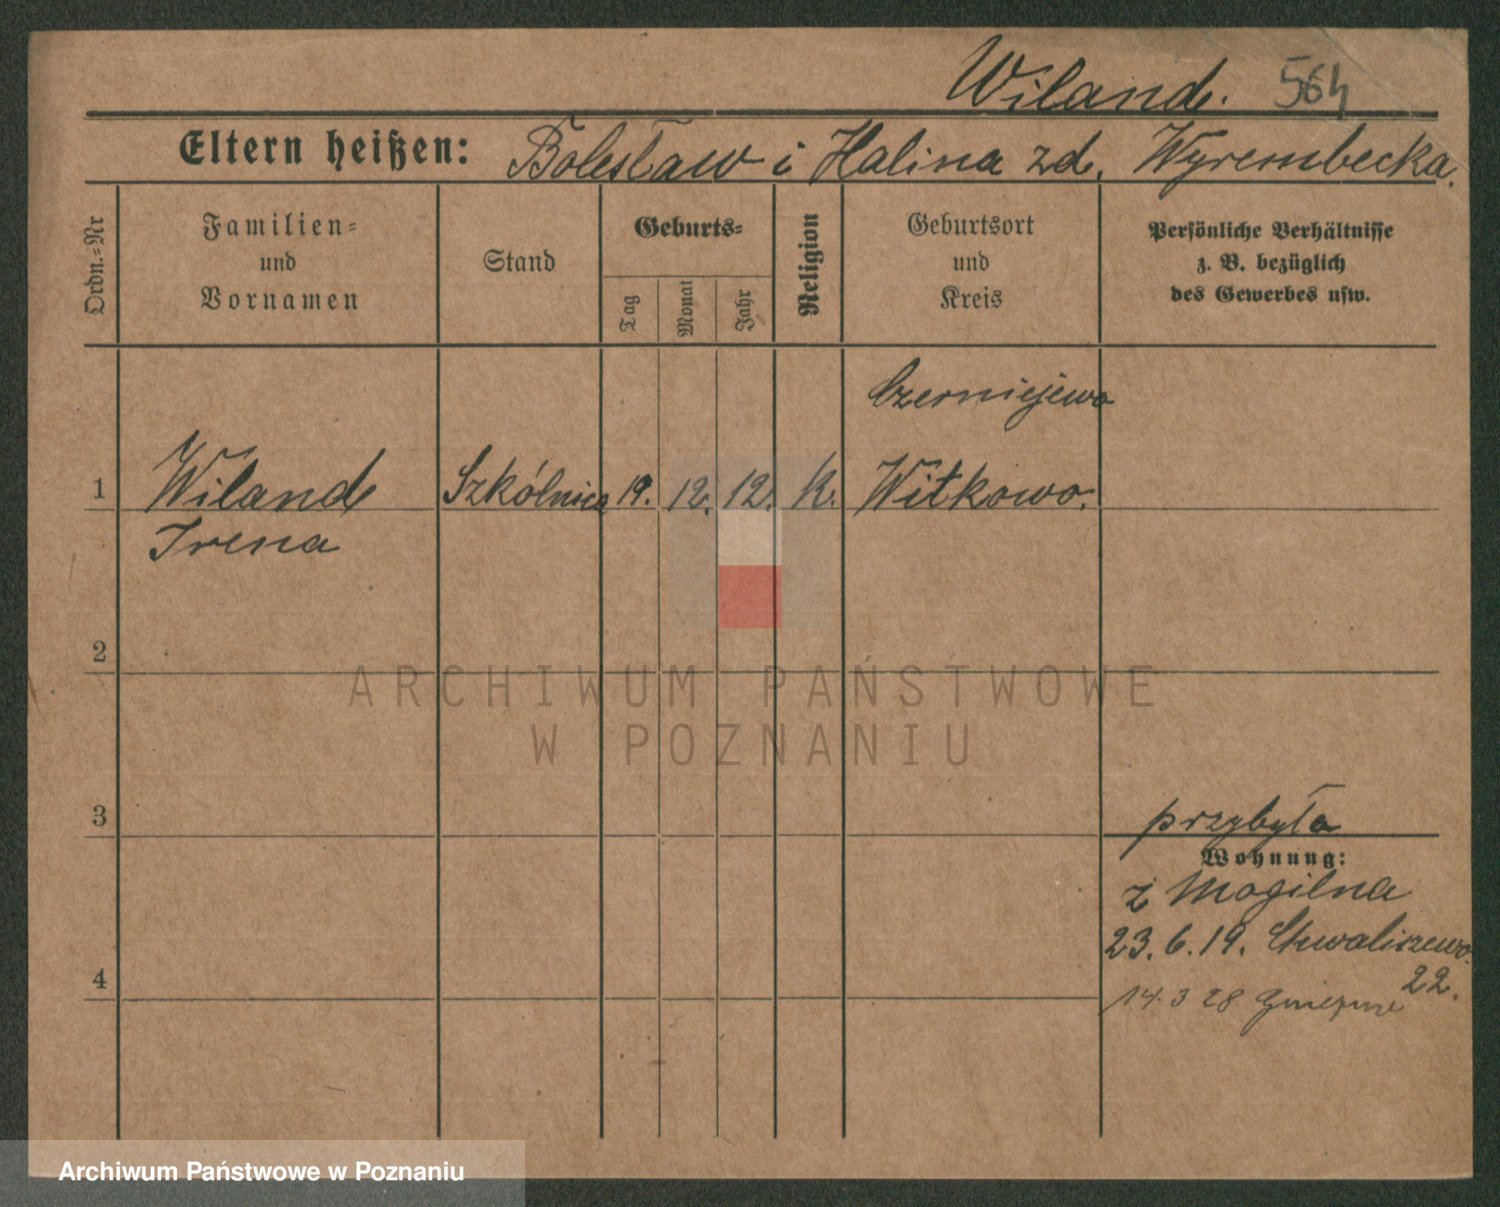 Wiland. 564
Eltern heißen: Bolesław i Halina zd. Wyrembecka.
Ordn.-Nr
Familien-
und
Vornamen
Stand
Geburts-
Tag
Monat
Jahr
Religion
Geburtsort
und
Kreis
Persönliche Verhältnisse
z. B. bezüglich
des Gewerbes usw.
Czerniejewo
1 Wiland Szkólnica 19. 12. 12. K. Witkowo.
Irena
2
ARCHIWUM PAŃSTWOWE
W POZNANIU
3
przybyła
Wohnung:
z Mogilna
23. 6. 19. Chwaliszewo
22.
4
14. 3 28
Archiwum Państwowe w Poznaniu